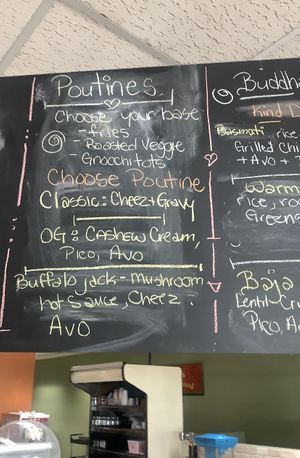 Poutines
Choose your base
- fries
- Roasted Veggie
- Gnocchi tots
Choose Poutine
Classic: Cheez + Gravy
OG: Cashew Cream,
Pico, Avo
Buffalo jack - Mushroom
hot sauce, Cheez
Avo
Buddha
Kind
Basmati rice
Grilled Chi
+ Avo +
Warm
rice, ro
Greens
Baja
Lentil C
Pico, A